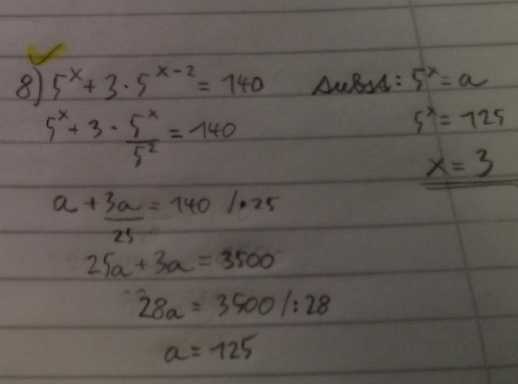 8) 5^x + 3 · 5^(x-2) = 140
5^x + 3 · 5^x/5^2 = 140
a + 3a/25 = 140 / · 25
25a + 3a = 3500
28a = 3500 / : 28
a = 125
subst: 5^x = a
5^x = 125
x = 3